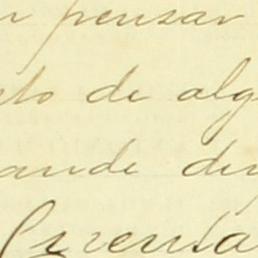 r pensar
to de alg
ande di
Cuenta